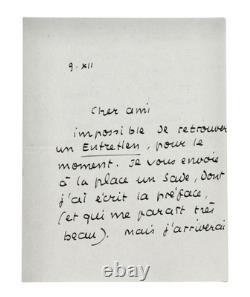 9. XII
Cher ami
impossible de retrouver
un Entretien, pour le
moment. Je vous envoie
à la place un Sade, dont
j'ai écrit la préface,
(et qui me paraît très
beau). mais j'arriverai
thecollectibles